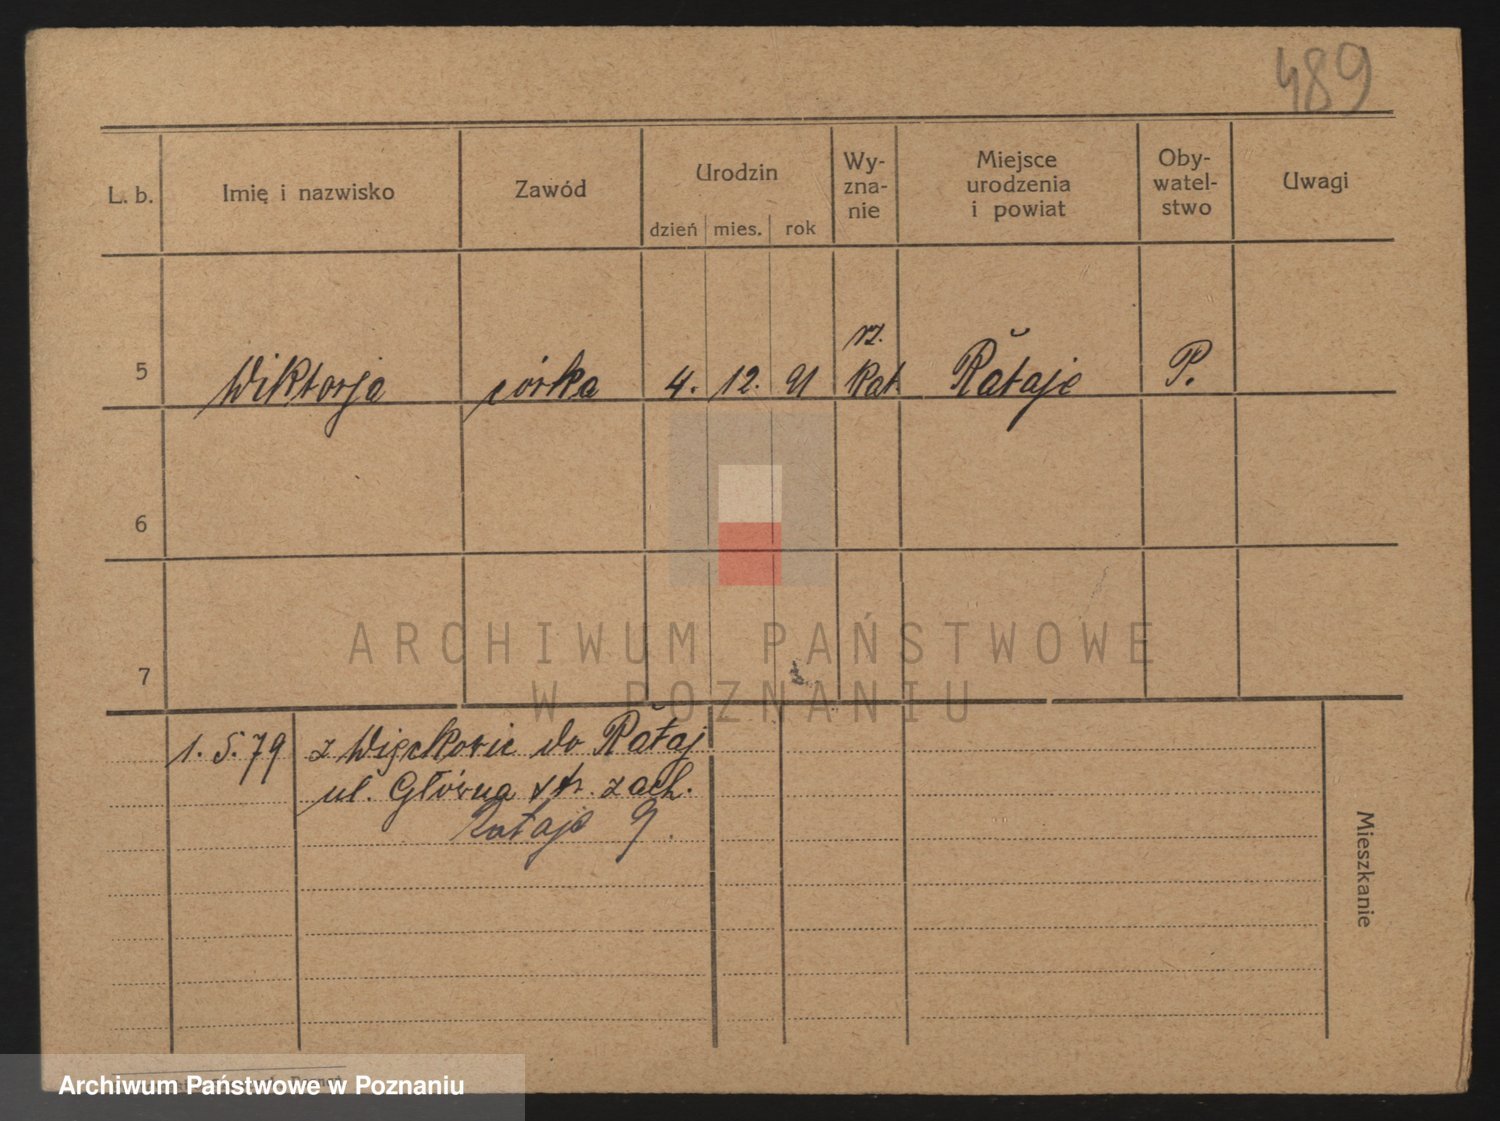 489
L. b. Imię i nazwisko Zawód Urodzin Wy-zna-nie Miejsce urodzenia i powiat Oby-watel-stwo Uwagi
dzień mies. rok
5 Wiktorja córka 4. 12. 91 rz. kat Rataje P.
6
7
1. 5. 79 z Więckowic do Rataj
ul. Główna str. zach.
Rataje 9.
Mieszkanie
ARCHIWUM PAŃSTWOWE
W POZNANIU
Archiwum Państwowe w Poznaniu